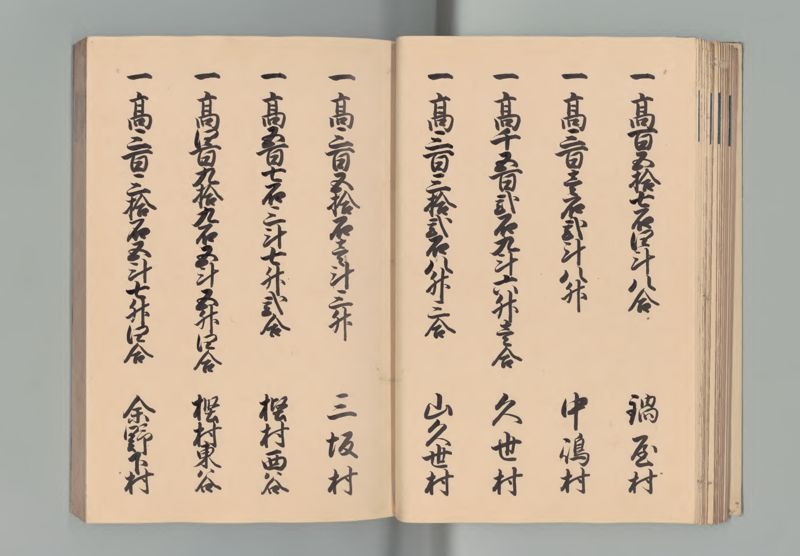 一 高百五拾七石四斗八合 鍋屋村
一 高三百壱石弐斗八升 中嶋村
一 高千五百弐石九斗六升壱合 久世村
一 高三百三拾弐石八升三合 山久世村
一 高三百五拾石壱斗三升 三坂村
一 高五百七石三斗七升弐合 樫村西谷
一 高四百九拾九石五斗五升四合 樫村東谷
一 高三百三拾石五斗七升四合 余野下村